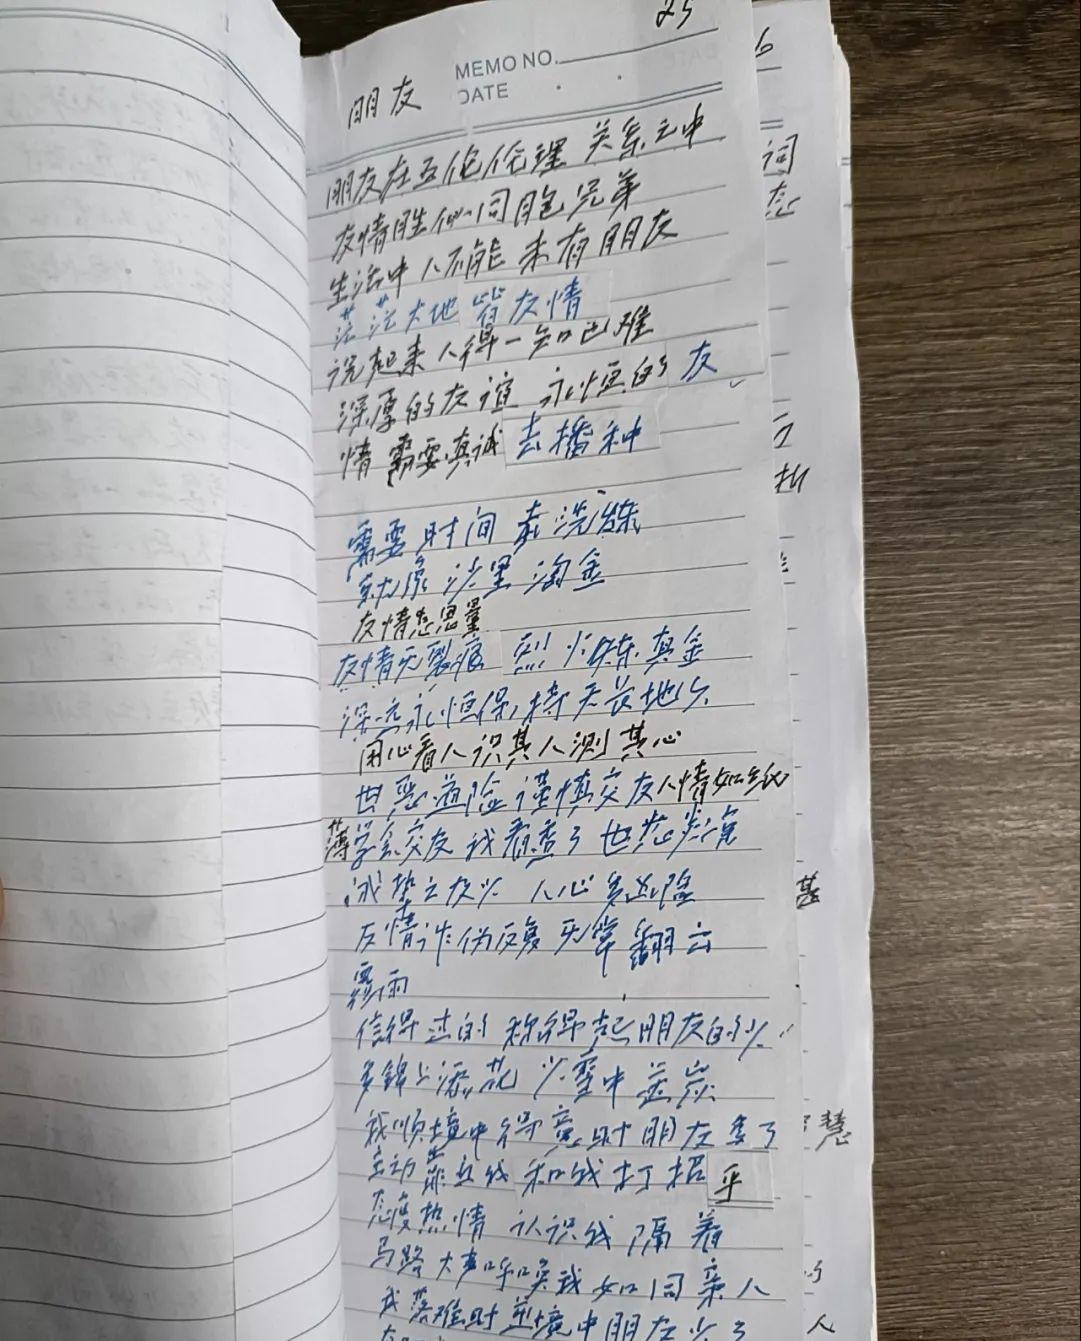 25
MEMO NO.
DATE
朋友
朋友在五伦伦理关系之中
友情胜似同胞兄弟
生活中人不能未有朋友
茫茫大地皆友情
说起来人得一知己难
深厚的友谊永恒的友
情需要真诚去播种
需要时间来洗炼
就像沙里淘金
友情思量
友情无裂痕烈火炼真金
深远永恒保持天长地久
用心看人识其人测其心
世恶道险谨慎交友人情如纸
薄学会交友我看透了世态炎凉
人心多凶险
友情诈伪反复无常翻云
雾雨
信得过的称得起朋友的少
多锦上添花少雪中盖炭
我顺境中得意时朋友多了
主动和我打招乎
态度热情认识我隔着
马路大声呼唤我如同亲人
我落难时逆境中朋友少了
6
词
态
了
折
甚
慧
的
人